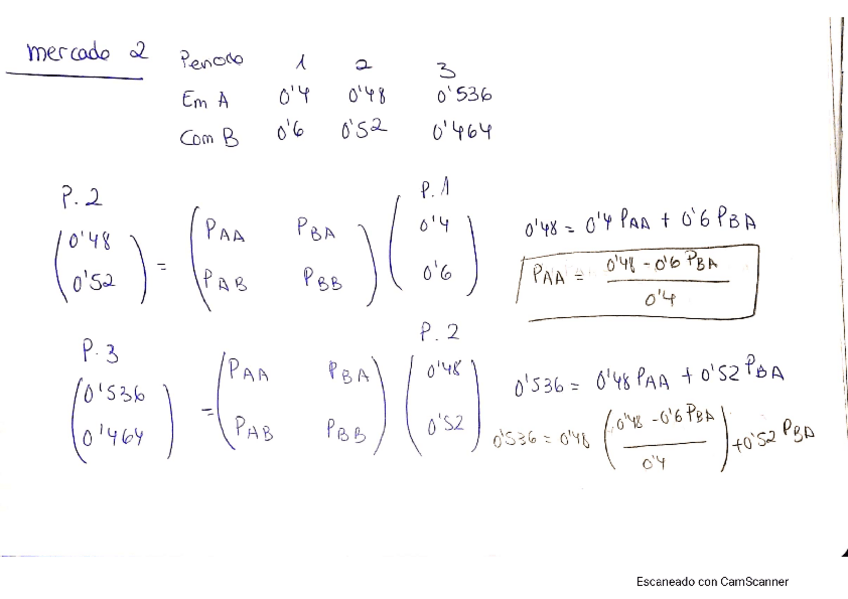 mercado 2
Periodo 1 2 3
Em A 0'4 0'48 0'536
Com B 0'6 0'52 0'464
P. 2 P. 1
(0'48 0'52) = (PAA PBA PAB PBB) (0'4 0'6)
0'48 = 0'4 PAA + 0'6 PBA
PAA = (0'48 - 0'6 PBA) / 0'4
P. 3 P. 2
(0'536 0'464) = (PAA PBA PAB PBB) (0'48 0'52)
0'536 = 0'48 PAA + 0'52 PBA
0'536 = 0'48 ((0'48 - 0'6 PBA) / 0'4) + 0'52 PBA
Escaneado con CamScanner